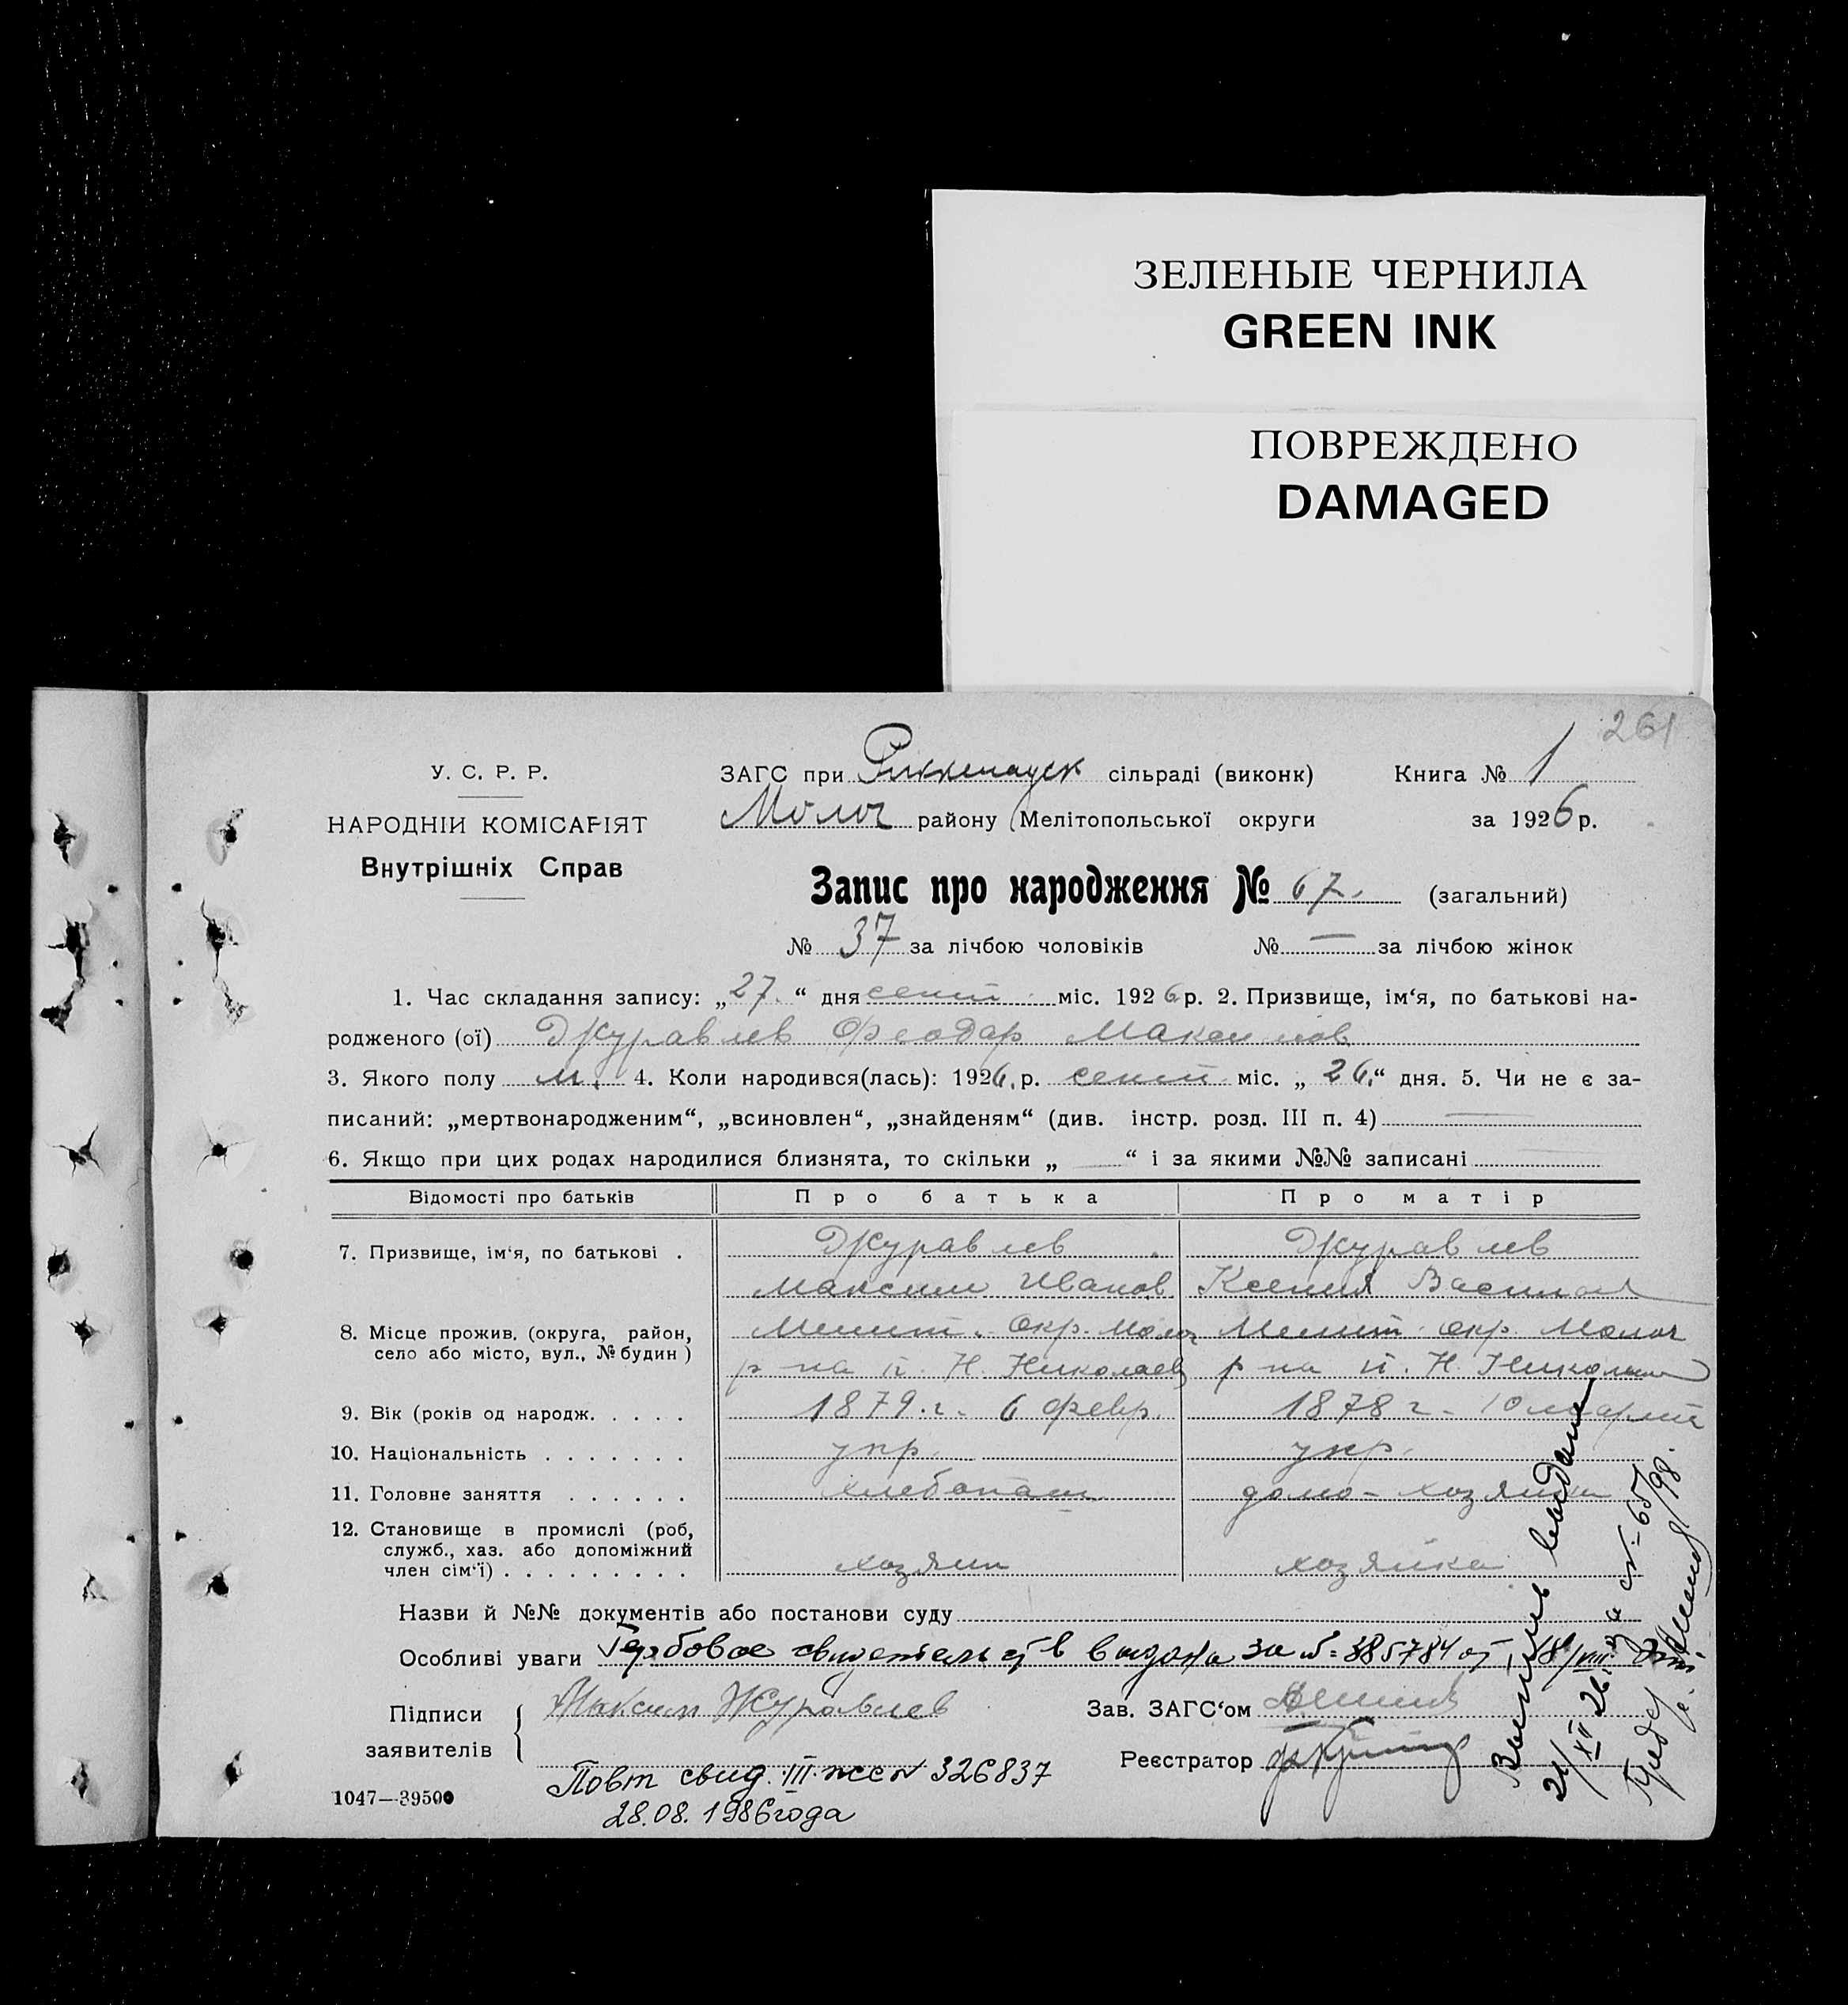 ЗЕЛЕНЫЕ ЧЕРНИЛА
GREEN INK
ПОВРЕЖДЕНО
DAMAGED
261
У. С. Р. Р.
НАРОДНІЙ КОМІСАРІЯТ
Внутрішніх Справ
ЗАГС при сільраді (виконк) Книга № 1
Молоч району Мелітопольської округи за 1926 р.
Запис про народження № 67. (загальний)
№ 37 за лічбою чоловіків № — за лічбою жінок
1. Час складання запису: „27.“ дня сент міс. 1926 р. 2. Призвище, ім‘я, по батькові на-
родженого (ої) Журавлев Феодар Максимов
3. Якого полу м. 4. Коли народився(лась): 1926. р. сент міс. „26.“ дня. 5. Чи не є за-
писаний: „мертвонародженим“, „всиновлен“, „знайденям“ (див. інстр. розд. III п. 4) —
6. Якщо при цих родах народилися близнята, то скільки „ — “ і за якими №№ записані —
Відомості про батьків Про батька Про матір
7. Призвище, ім‘я, по батькові . Журавлев Журавлев
Максим Иванов Ксения
8. Місце прожив. (округа, район, Мелит. окр. Молоч Мелит. окр. Молоч
село або місто, вул., № будин) р на п. Н. Николаев р на п. Н.
9. Вік (років од народж. . . . . 1879 г. 6 февр. 1878 г. 10 марта
10. Національність . . . . . . . укр. укр.
11. Головне заняття . . . . . . хлебопаш домо-хозяйка
12. Становище в промислі (роб,
служб., хаз. або допоміжний
член сім‘ї) . . . . . . . . . хозяин хозяйка
Назви й №№ документів або постанови суду
Особливі уваги Гербовое выдано за №= 385784 от 18/VIII
Підписи
заявителів
Максим Журавлев
Зав. ЗАГС‘ом
Реєстратор
Повт свид. III-жс № 326837
28.08.1986 года
1047—39500
21/XII 26. за № 65/98.